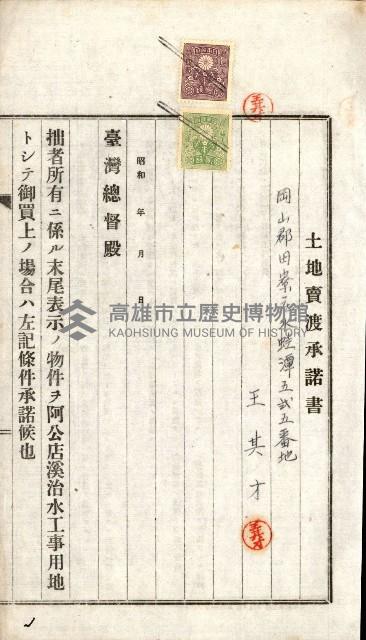 土地賣渡承諾書
岡山郡田寮庄水蛙潭五弍五番地
王其才
昭和　年　月　日
臺灣總督殿
拙者所有ニ係ル末尾表示ノ物件ヲ阿公店溪治水工事用地
トシテ御買上ノ場合ハ左記條件承諾候也
高雄市立歷史博物館
KAOHSIUNG MUSEUM OF HISTORY